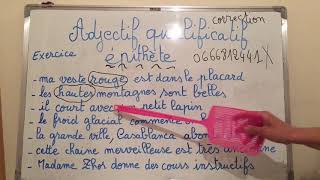 correction
Adjectif qualificatif
épithète
0666812441
Exercice
- ma veste rouge est dans le placard
- les hautes montagnes sont belles
- il court avec petit lapin
- le froid glacial commence
- la grande ville, Casablanca
- cette chaîne merveilleuse est très ancienne
- Madame Zhos donne des cours instructifs